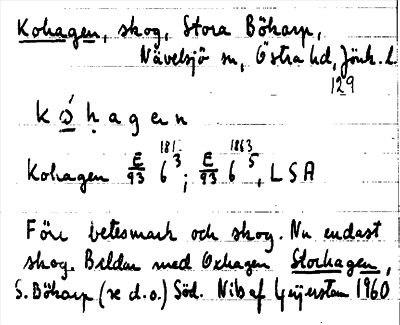 Kohagen, skog, Stora Bökarp,
Nävelsjö sn, Östra hd, Jönk. l.
129
kóhagen
1813 1863
Kohagen E/93 6 3; E/93 6 5, LSA
Förr betesmark och skog. Nu endast
skog. Bildar med Oxhagen Storhagen,
S. Bökarp (se d.o.) Söd. Nib af Geijerstam 1960